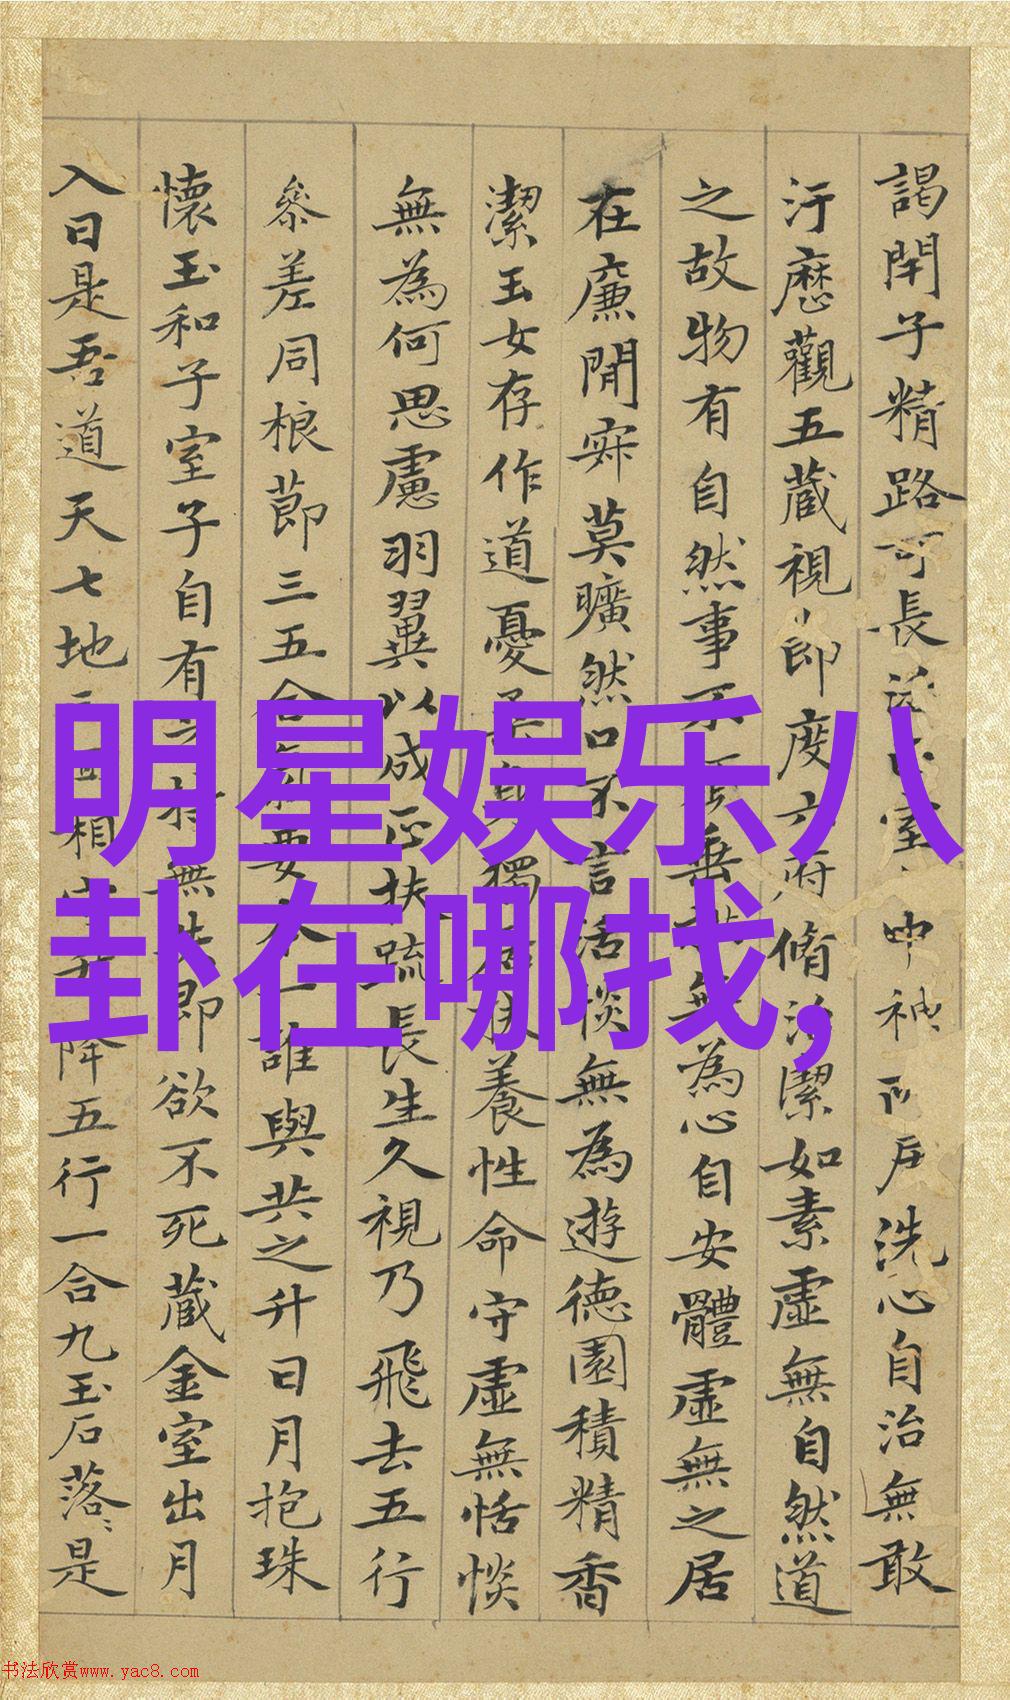 謁閇子精路可長
汙歷觀五藏視節度六府脩治潔如素虛無自然道
之故物有自然事不垂無為心自安體虛無之居
在廉閒寂莫曠然口不言活惔無為遊德園積精香
潔玉女存作道憂身獨養性命守虛無恬惔
無為何思慮羽翼以成正扶疏長生久視乃飛去五行
參差同根節三五合要本一誰與共之升日月抱珠
懷玉和子室子自有持無失即欲不死藏金室出月
入日是吾道天七地三相守升降五行一合九玉石落〻是
明星娱乐八
卦在哪找,
书法欣赏www.yac8.com